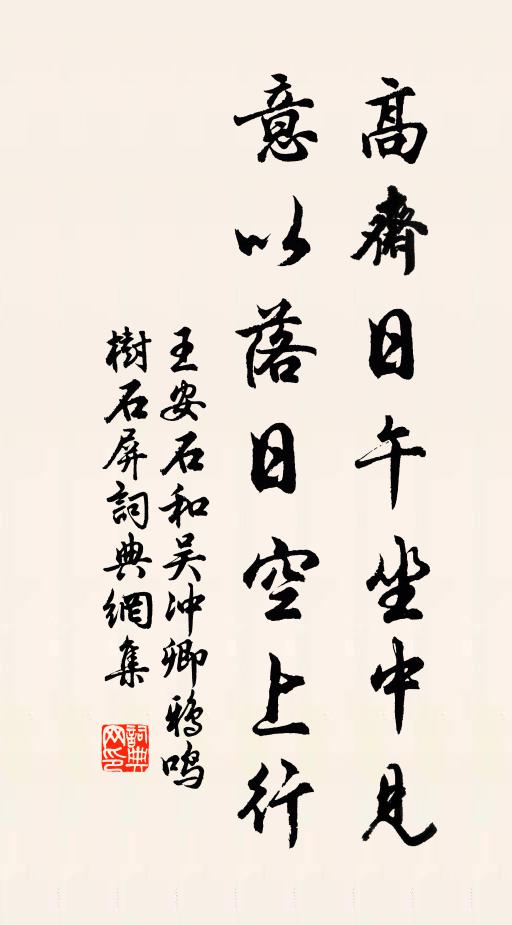 高齋日午坐中見
意以落日空上行
王安石和吴冲卿鴉鸣
樹石屏詞典網集
詞典网印